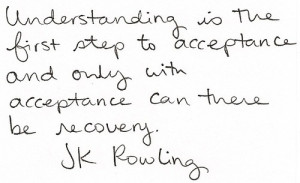 Understanding is the
first step to acceptance
and only with
acceptance can there
be recovery.
JK Rowling